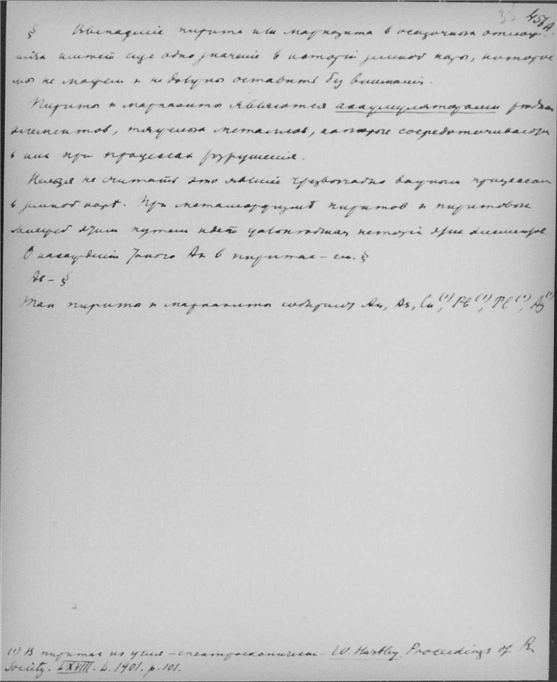 35 456A
§ Выпадение пирита или марказита в осадочных отлож.
имеет еще одно значение в истории земной коры, которое
мы не можем и не должны оставить без внимания.
Пириты и марказиты являются аккумуляторами редких
элементов, тяжелых металлов, которые сосредоточиваются
в них при процессах разрушения.
Нельзя не считать это явление чрезвычайно важным процессом
в земной коре. При метаморфизме пиритов и пиритовых
этим путем идет история элементов
О нахождении Au в пиритах – см. §
As – §
Так пириты и марказиты содержат Au, As, Cu (1), Pb (1), (1), Ag (1)
(1) В пиритах из угля – спектроскопически – W. Hartley. Proceedings of R.
Society. LXVIII. L. 1901. p. 101.